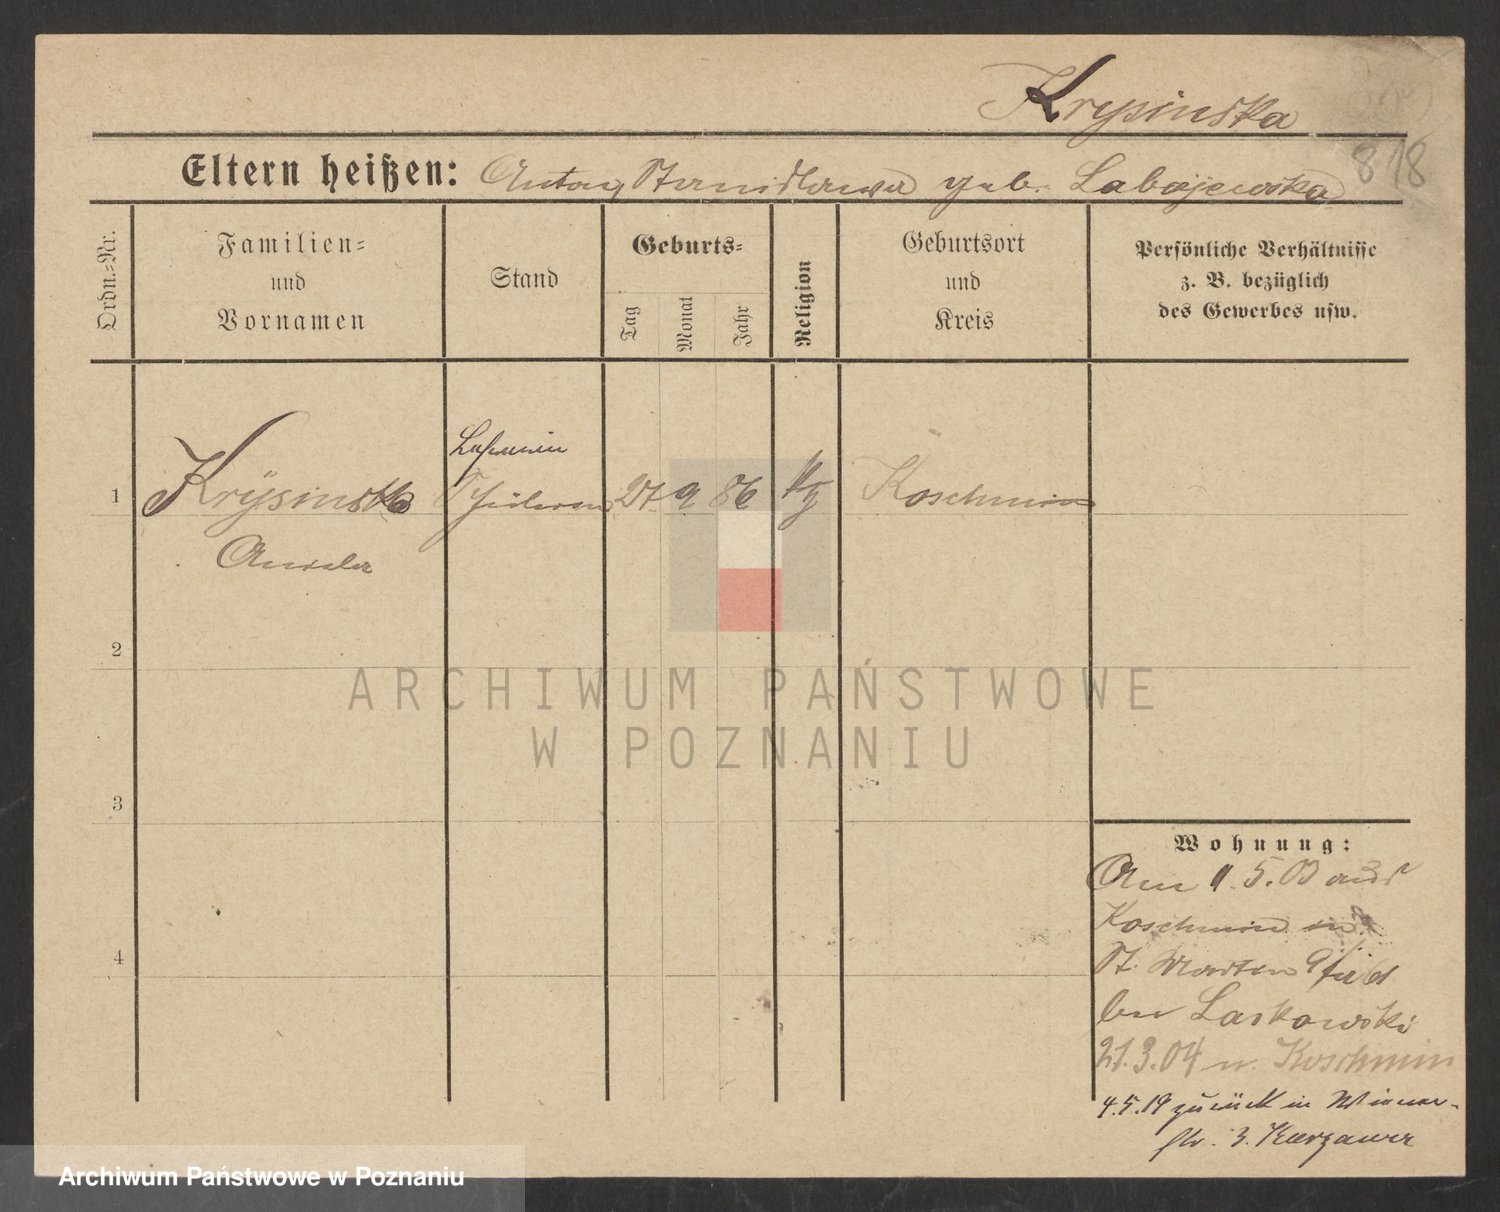 Krysinska
818
Eltern heißen: Anton, Stanislawa geb. Labajewska
Ordn.-Nr.
Familien-
und
Vornamen
Stand
Geburts-
Tag
Monat
Jahr
Religion
Geburtsort
und
Kreis
Persönliche Verhältnisse
z. B. bezüglich
des Gewerbes usw.
1
Krysinska
Schülerin
9 86
Koschmin
2
ARCHIWUM PAŃSTWOWE
W POZNANIU
3
Wohnung:
Am 1.5.03 aus
Koschmin in
St. Martin
bei Laskowski
21.3.04 n. Koschmin
4.5.19 zurück in
str. 3.
4
Archiwum Państwowe w Poznaniu